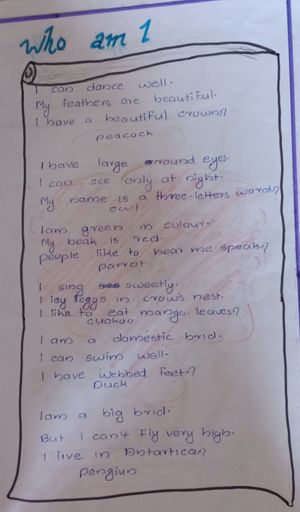 who am I
I can dance well.
My feathers are beautiful.
I have a beautiful crown?
peacock
I have large around eyes.
I can see only at night.
My name is a three-letters word?
owl
I am green in colour.
My beak is red.
people like to hear me speak?
parrot
I sing sweetly.
I lay eggs in crow's nest.
I like to eat mango leaves?
cuckoo
I am a domestic brid.
I can swim well.
I have webbed feet?
Duck
I am a big brid.
But I can't fly very high.
I live in Antartica?
pengiun